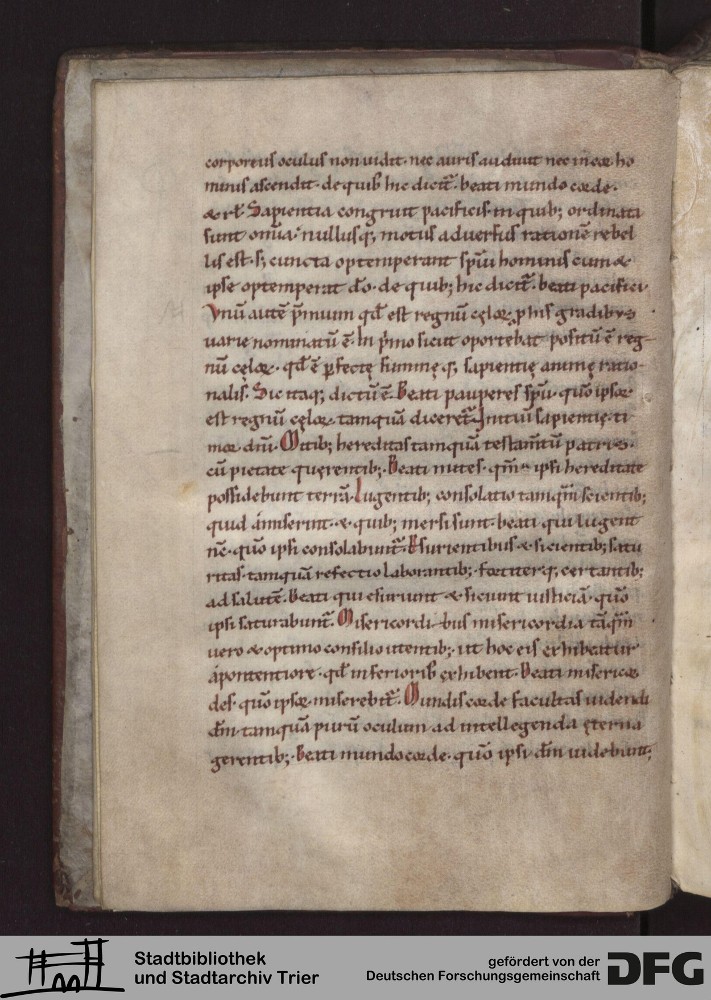 corporeus oculus non uidit· nec auris audiuit nec in cor ho
minis ascendit· de quib; hic dicit̃· beati mundo corde·
& rł. Sapientia congruit pacificis· in quib; ordinata
sunt om̃ia· nullusq; motus aduersus rationē rebel
lis est· s; cuncta optemperant sp̃ui hominis cum &
ipse optemperat dõ· de quib; hic dicit̃· beati pacifici
Vnũ autē p̃mum qd̃ est regnũ cęlor̃· p his gradib;
uarie nominatũ ē. In p̃mo sicut oportebat positũ ē reg
nũ cęlor̃· qd̃ ē ꝑfectę summę q; sapientię animę ratio
nalis. Sic itaq; dictũ ē. Beati pauperes sp̃u· quõ ipsor̃
est regnũ cęlor̃· tamquã diceret̃. Initiũ sapientię ti
mor dñi. Mitib; hereditas tamquã testam̃tũ patris·
cũ pietate querentib;. Beati mites· qm̃ ipsi hereditate
possidebunt terrã. Lugentib; consolatio tamqm̃ scientib;
quid ámiserint· & quib; mersi sunt· beati qui lugent
nc̄· quõ ipsi consolabunt̃. Esurientibus & sicientib; satu
ritas· tamquã refectio laborantib;· fortiterq; certantib;
ad salutē. Beati qui esuriunt & siciunt iusticiã· quõ
ipsi saturabunt̃. Misericordi bus misericordia tãqm̃
uero & optimo consilio utentib;· ut hoc eis exhibeatur
á potentiore· qd̃ inferiorib; exhibent. Beati misericor
des· quõ ipsor̃ miserebit̃. Mundis corde facultas uidendi
dm̃· tamquã purũ oculum ad intellegenda ęterna
gerentib;. Beati mundo corde· quõ ipsi dm̃ uidebunt;
Stadtbibliothek
und Stadtarchiv Trier
gefördert von der
Deutschen Forschungsgemeinschaft
DFG